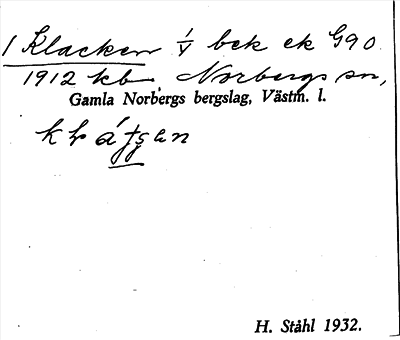 1 Klacken 1/V bek ek G90
1912 kb Norbergs sn,
Gamla Norbergs bergslag, Västm. l.
H. Ståhl 1932.